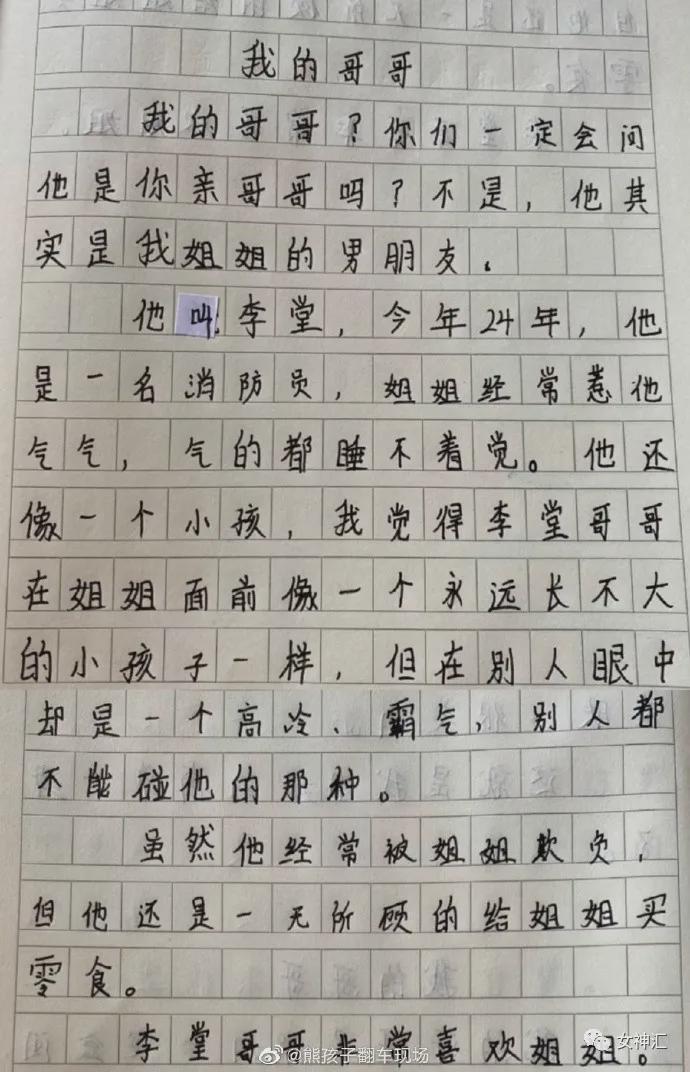 我的哥哥
我的哥哥?你们一定会问
他是你亲哥哥吗?不是,他其
实是我姐姐的男朋友.
他叫李堂,今年24年,他
是一名消防员,姐姐经常惹他
气气,气的都睡不着觉。他还
像一个小孩,我觉得李堂哥哥
在姐姐面前像一个永远长不大
的小孩子一样,但在别人眼中
却是一个高冷、霸气,别人都
不能碰他的那种。
虽然他经常被姐姐欺负,
但他还是一无所顾的给姐姐买
零食。
李堂哥哥非常喜欢姐姐。
@熊孩子翻车现场
女神汇